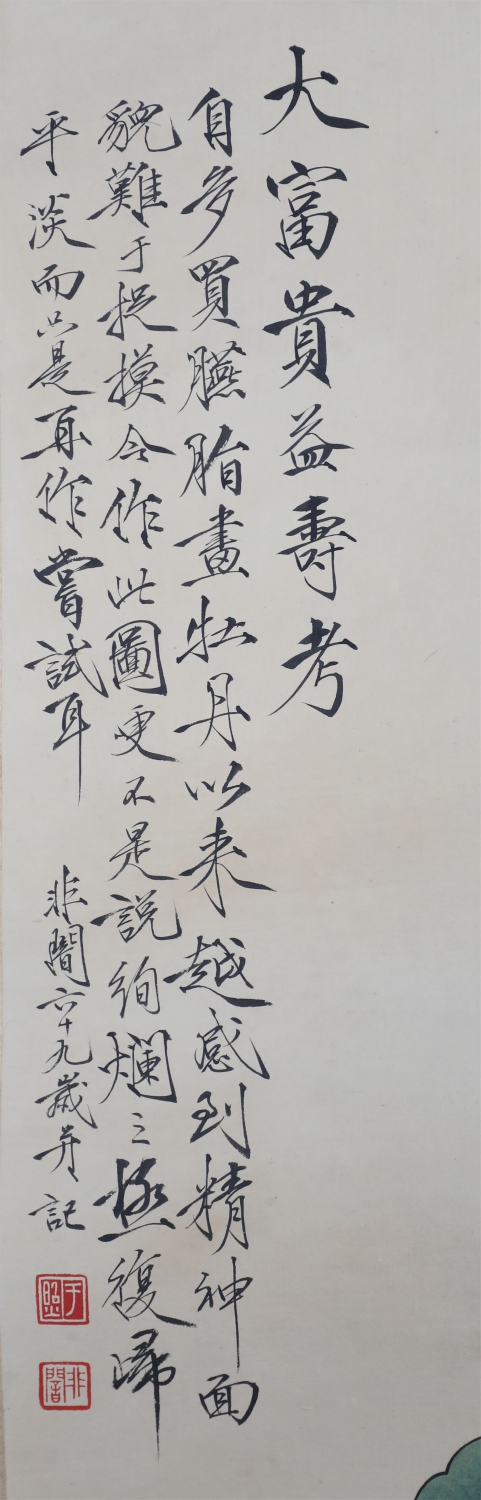 大富貴益壽考
自多買臙脂畫牡丹以来越感到精神面
貌難于捉摸今作此圖更不是説絢爛之極復歸
平淡而只是再作嘗試耳 非闇六十九歲并記
于照
非闇